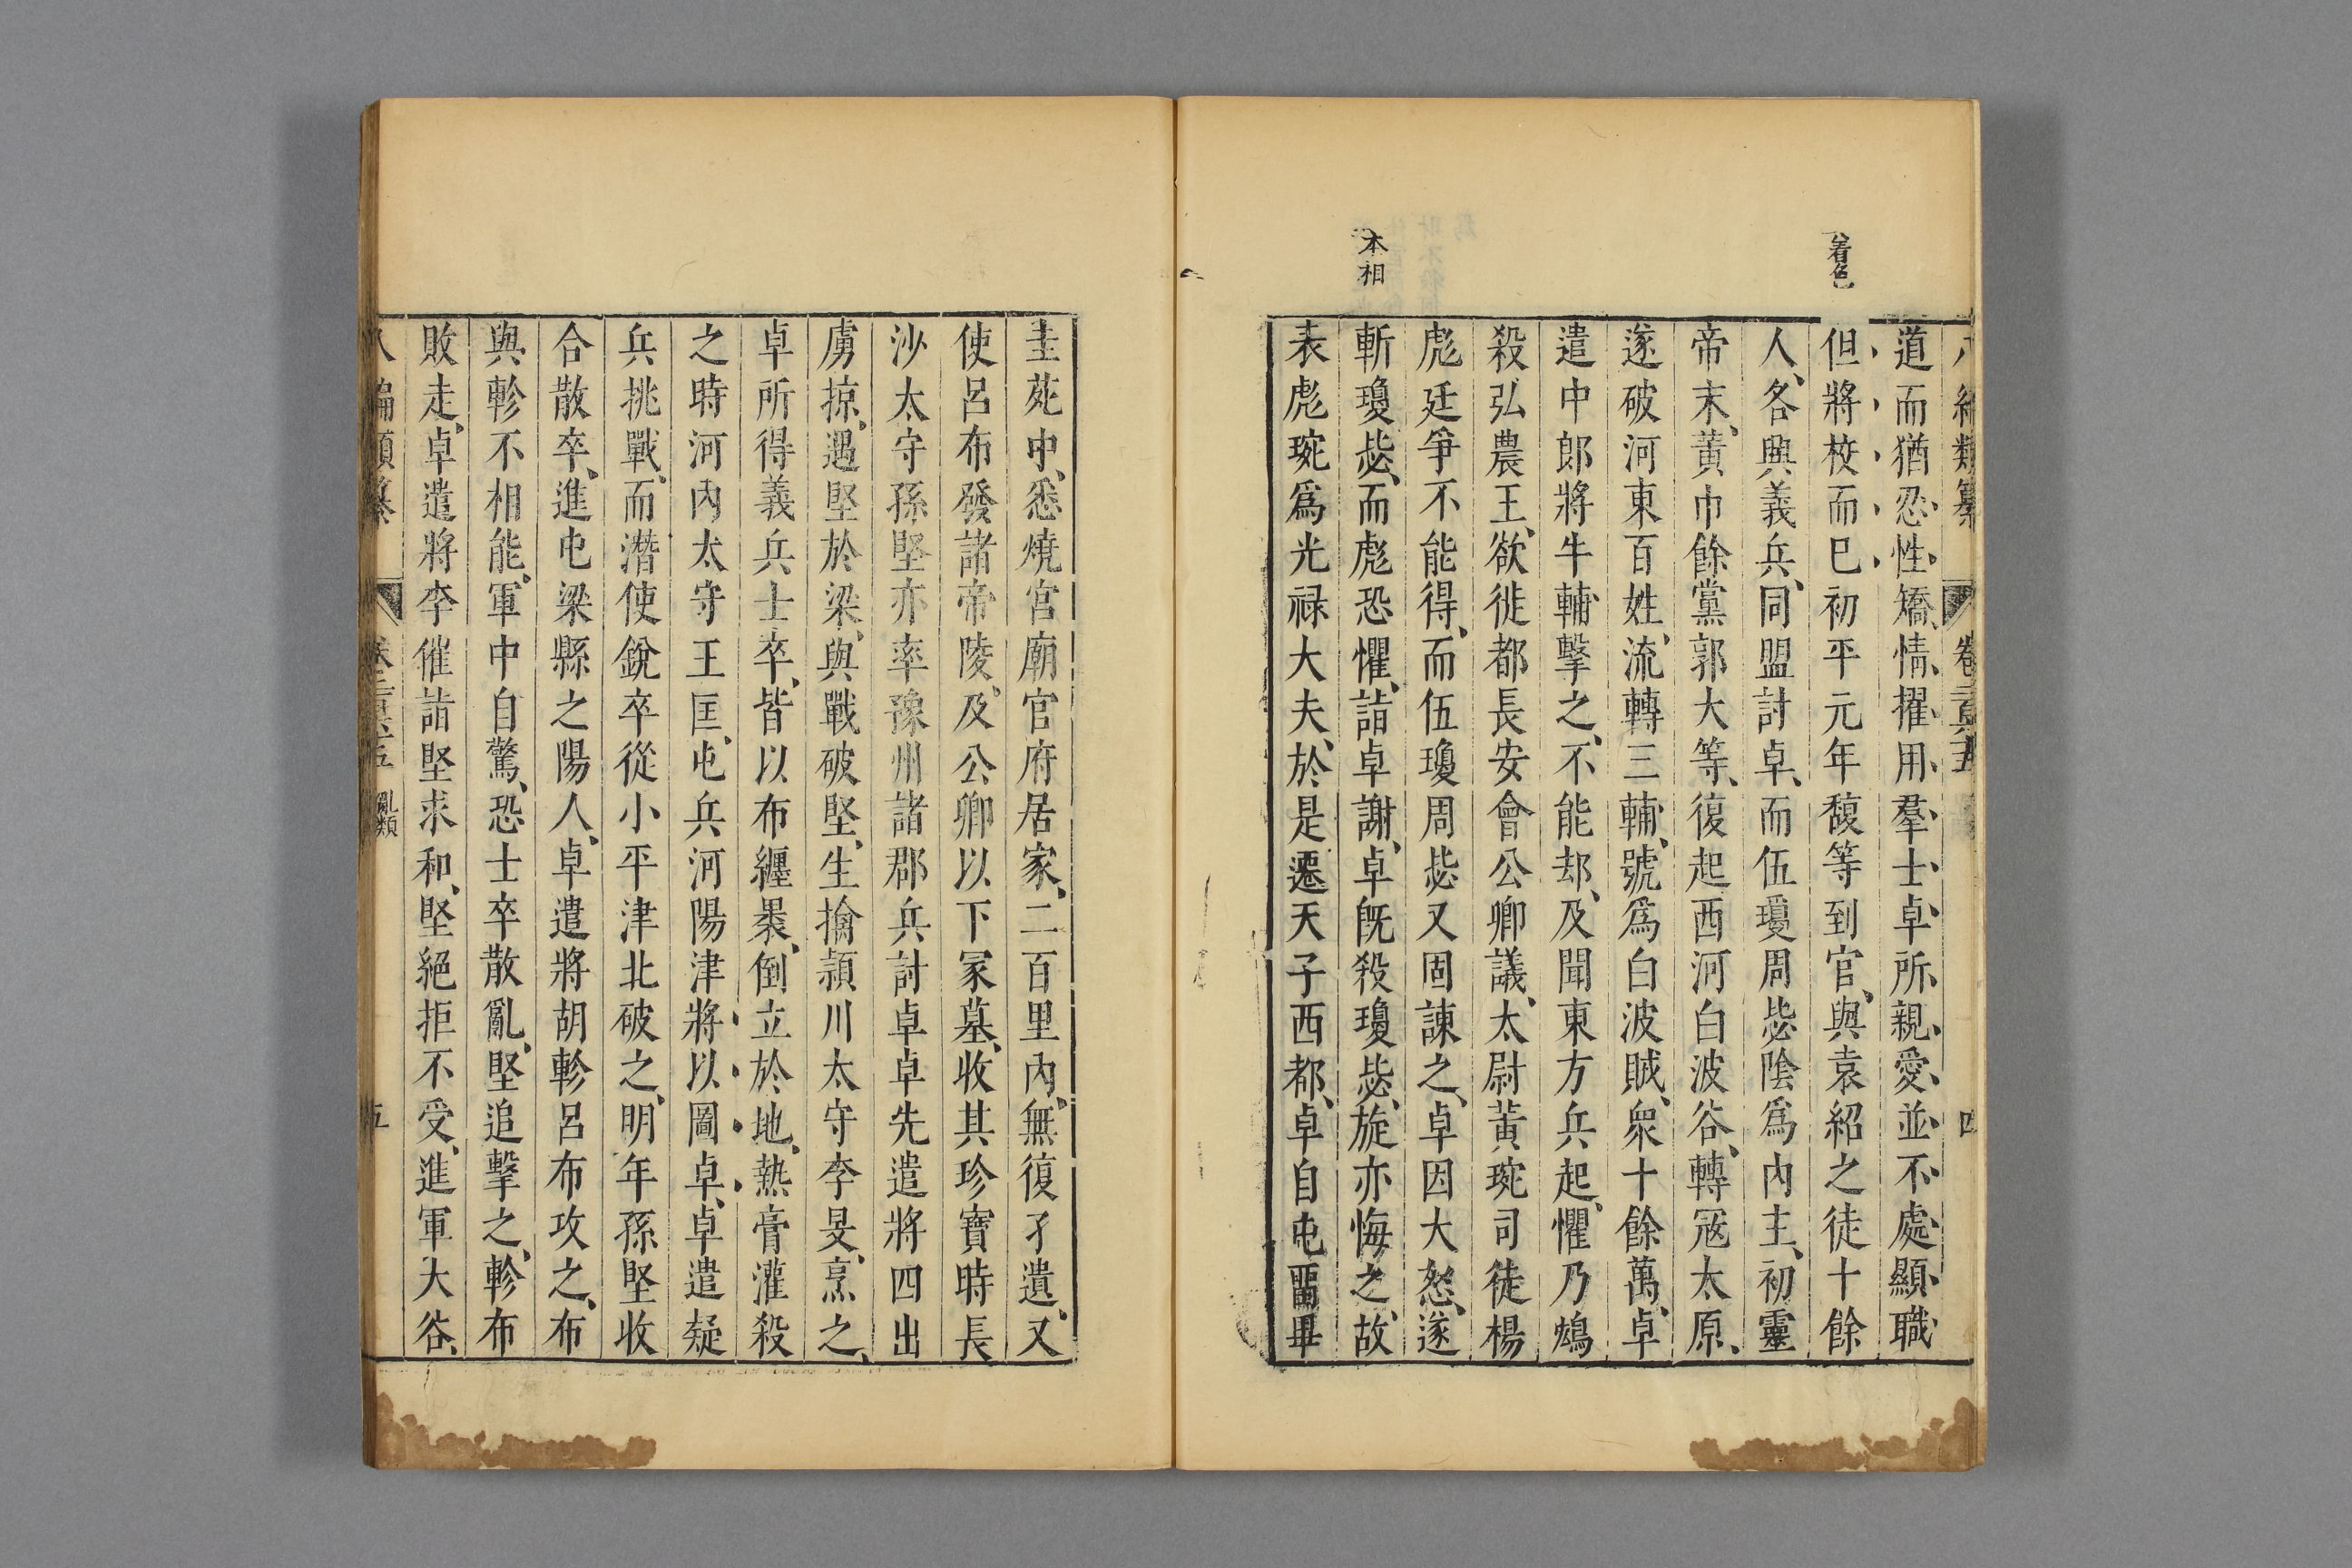 着色
本相
道而猶忍性矯情擢用羣士卓所親愛並不處顯職
但將校而巳初平元年馥等到官與袁紹之徒十餘
人各興義兵同盟討卓而伍瓊周毖陰爲內主初靈
帝末黃巾餘黨郭大等復起西河白波谷轉寇太原
遂破河東百姓流轉三輔號爲白波賊衆十餘萬卓
遣中郎將牛輔擊之不能却及聞東方兵起懼乃鴆
殺弘農王欲徙都長安會公卿議太尉黃琬司徒楊
彪廷爭不能得而伍瓊周毖又固諫之卓因大怒遂
斬瓊毖而彪恐懼詣卓謝卓旣殺瓊毖旋亦悔之故
表彪琬爲光祿大夫於是遷天子西都卓自屯畱畢
圭苑中悉燒宮廟官府居家二百里內無復孑遺又
使呂布發諸帝陵及公卿以下冢墓收其珍寶時長
沙太守孫堅亦率豫州諸郡兵討卓卓先遣將四出
虜掠遇堅於梁與戰破堅生擒潁川太守李旻烹之
卓所得義兵士卒皆以布纏裹倒立於地熱膏灌殺
之時河內太守王匡屯兵河陽津將以圖卓卓遣疑
兵挑戰而潛使銳卒從小平津北破之明年孫堅收
合散卒進屯梁縣之陽人卓遣將胡軫呂布攻之布
與軫不相能軍中自驚恐士卒散亂堅追擊之軫布
敗走卓遣將李傕詣堅求和堅絕拒不受進軍大谷
編類纂 亂類 五